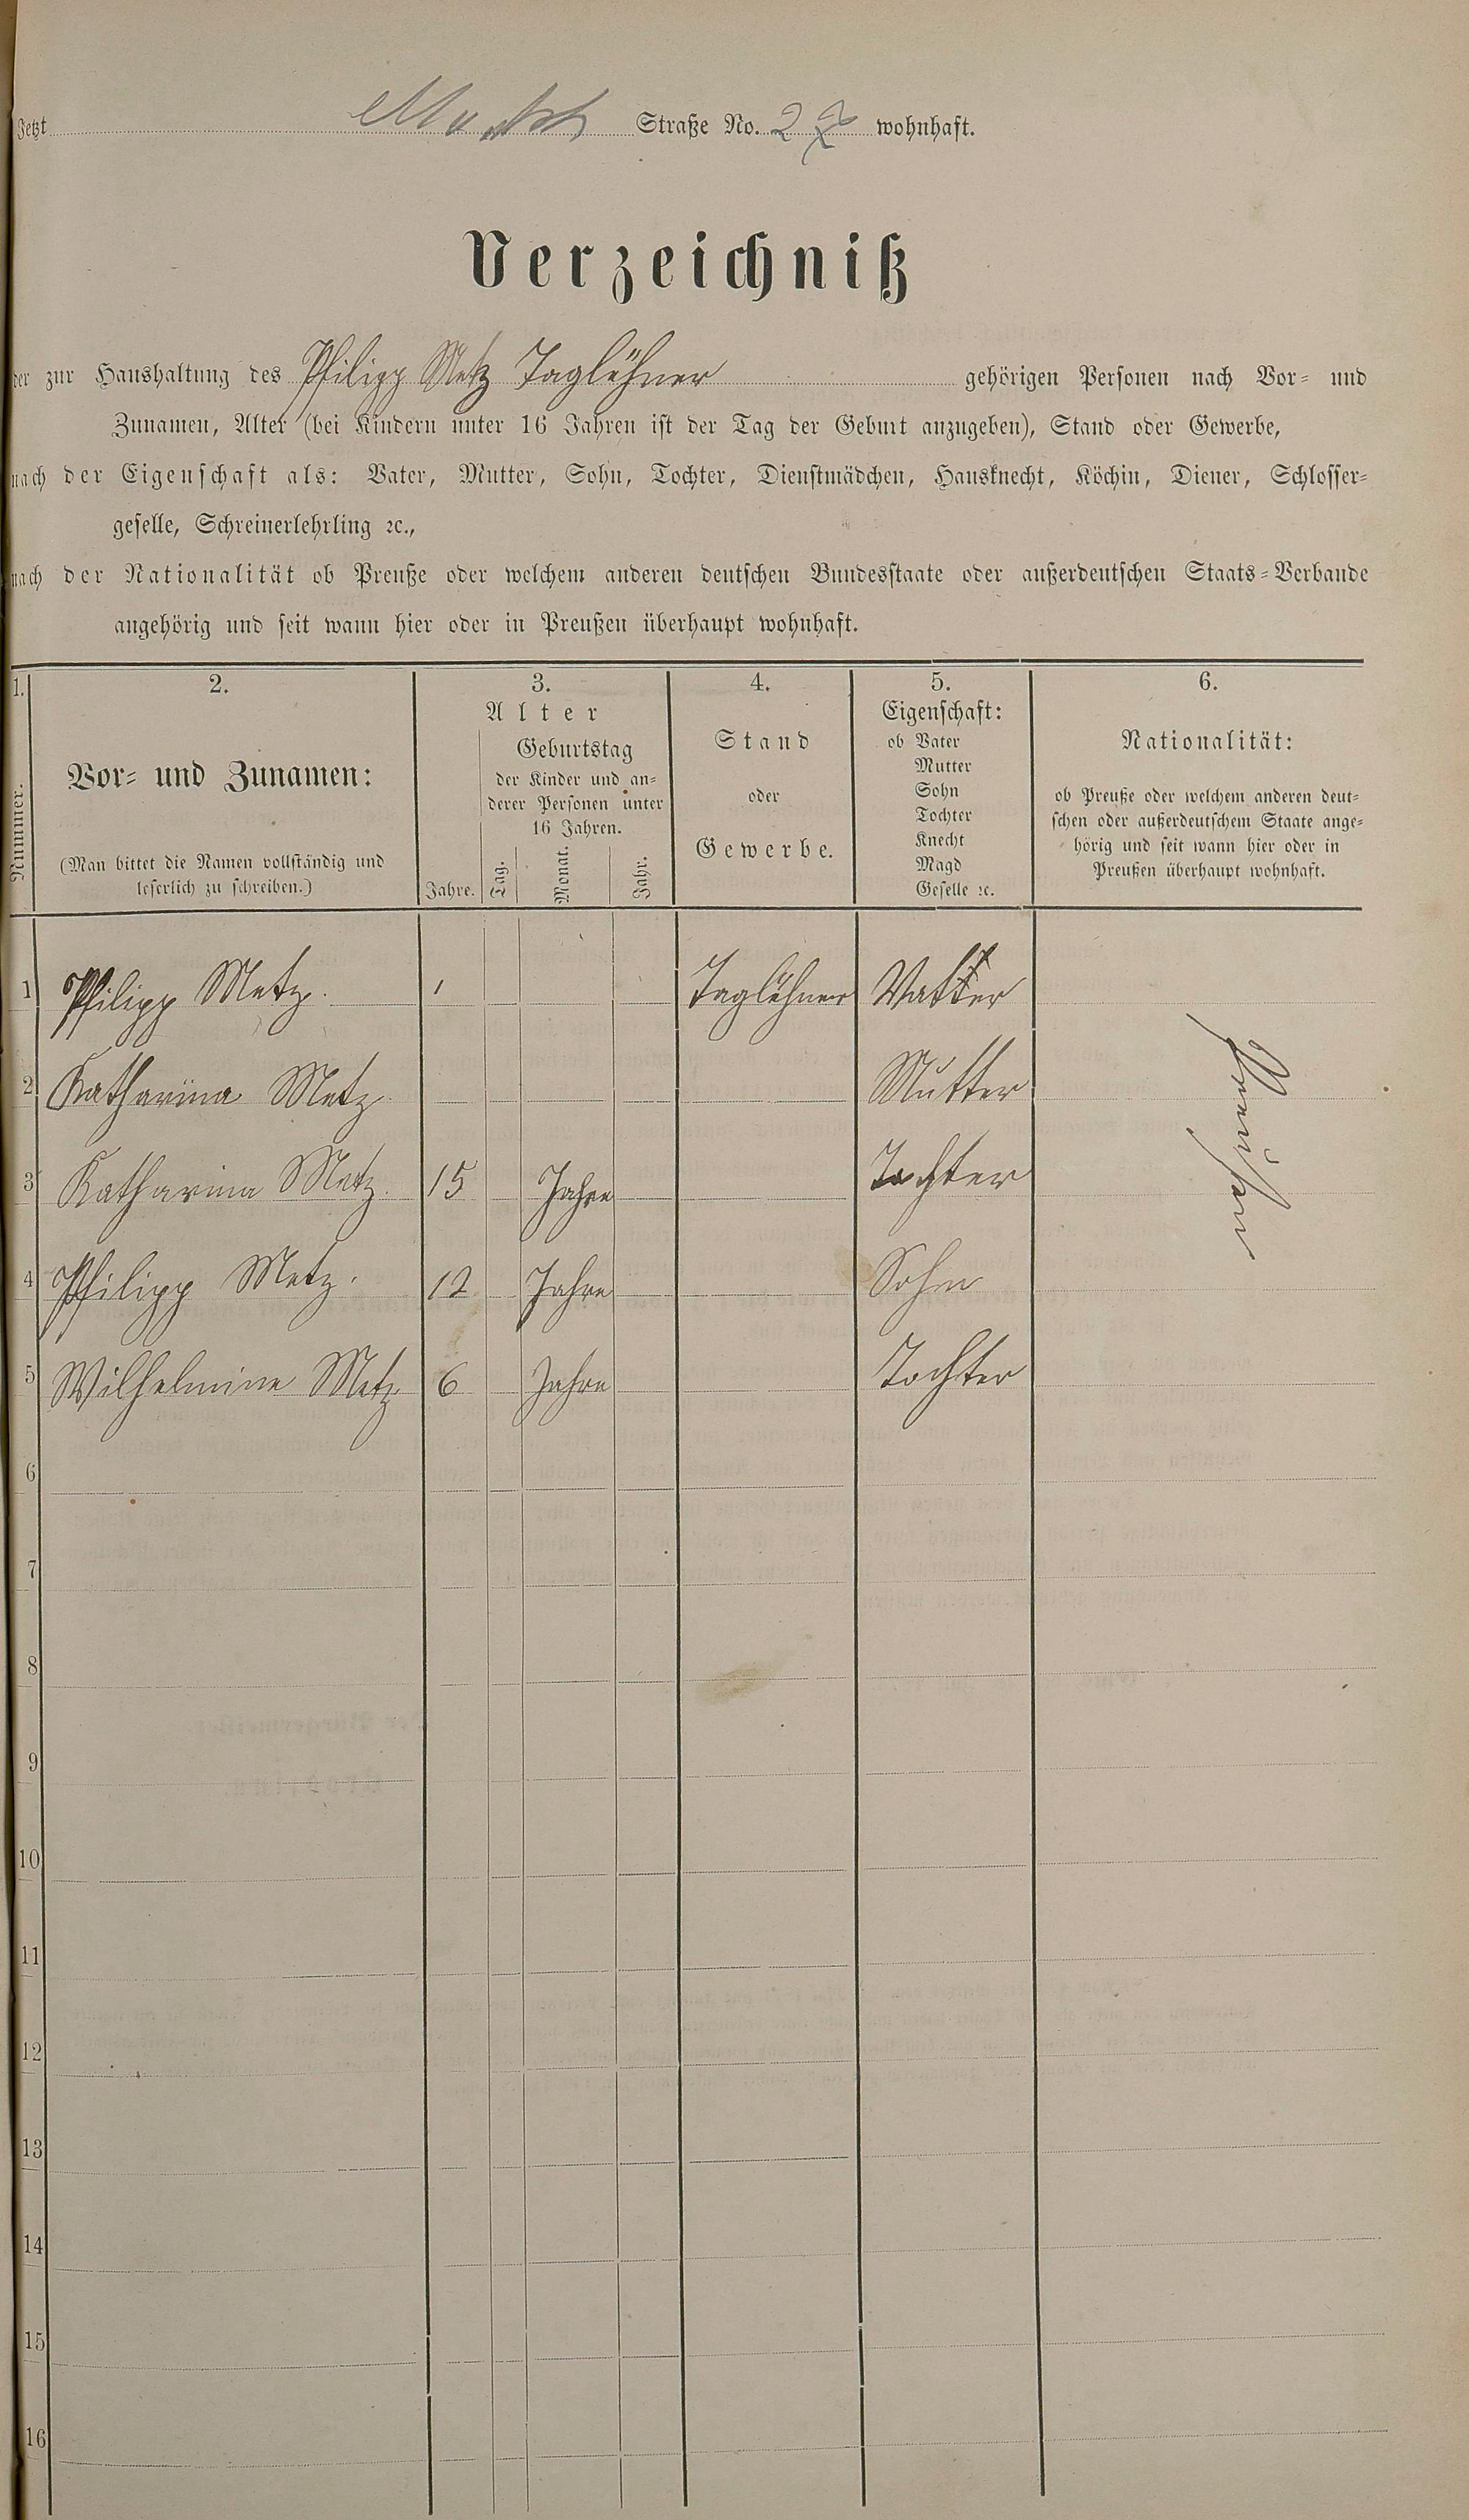 Jetzt Markt Straße No. wohnhaft.
Verzeichniß
der zur Haushaltung des Philipp Metz Taglöhner gehörigen Personen nach Vor- und
Zunamen, Alter (bei Kindern unter 16 Jahren ist der Tag der Geburt anzugeben), Stand oder Gewerbe,
nach der Eigenschaft als: Vater, Mutter, Sohn, Tochter, Dienstmädchen, Hausknecht, Köchin, Diener, Schlosser-
geselle, Schreinerlehrling ꝛc.,
nach der Nationalität ob Preuße oder welchem anderen deutschen Bundesstaate oder außerdeutschen Staats-Verbande
angehörig und seit wann hier oder in Preußen überhaupt wohnhaft.
1.
Nummer.
2.
Vor- und Zunamen:
(Man bittet die Namen vollständig und
leserlich zu schreiben.)
3.
Alter
Jahre.
Geburtstag
der Kinder und an-
derer Personen unter
16 Jahren.
Tag.
Monat.
Jahr.
4.
Stand
oder
Gewerbe.
5.
Eigenschaft:
ob Vater
Mutter
Sohn
Tochter
Knecht
Magd
Geselle ꝛc.
6.
Nationalität:
ob Preuße oder welchem anderen deut-
schen oder außerdeutschem Staate ange-
hörig und seit wann hier oder in
Preußen überhaupt wohnhaft.
1 Philipp Metz. Taglöhner Vatter
2 Katharina Metz Mutter
3 Katharina Metz. 15 Jahre Tochter
4 Philipp Metz. 12 Jahre Sohn
5 Wilhelmine Metz 6 Jahre Tochter
Preußen
6
7
8
9
10
11
12
13
14
15
16